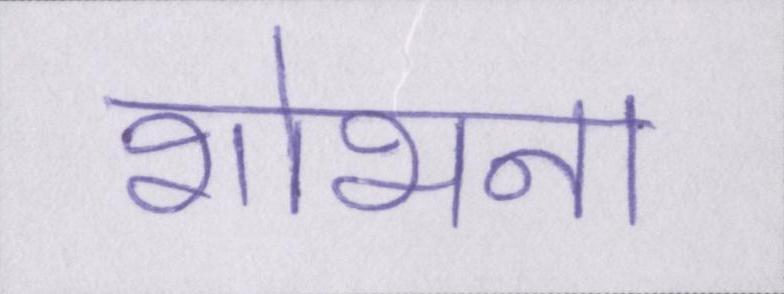 शोभना